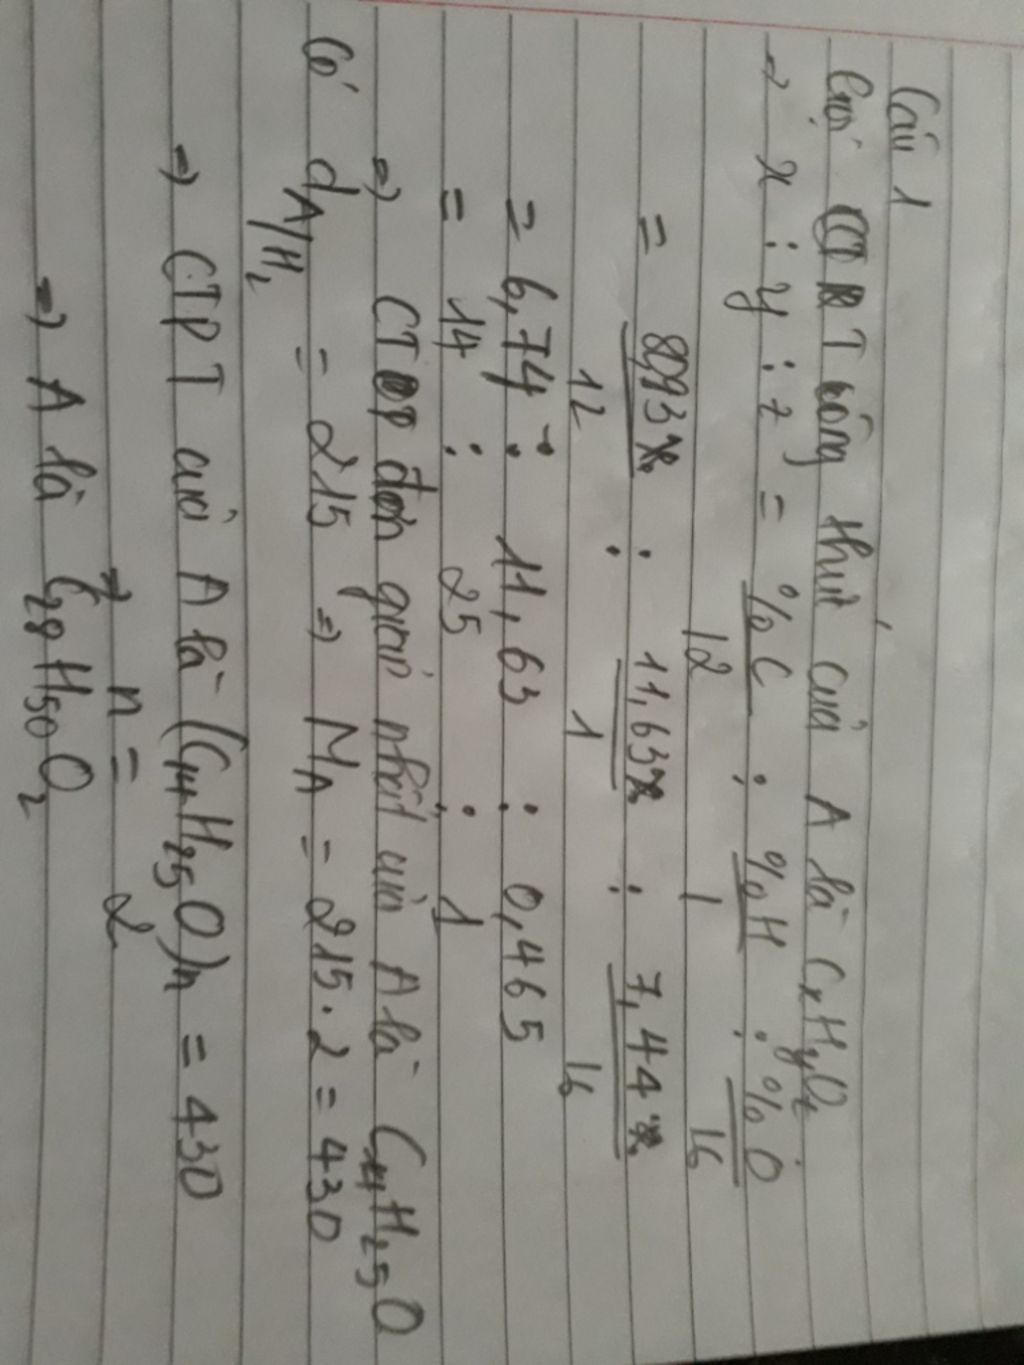 Câu 1
Gọi CTPT công thức của A là CxHyOz
⇒ x : y : z = %C/12 : %H/1 : %O/16
= 80,93%/12 : 11,63%/1 : 7,44%/16
= 6,74 : 11,63 : 0,465
= 14 : 25 : 1
⇒ CT ĐP đơn giản nhất của A là C14H25O
Có dA/H2 = 215 ⇒ MA = 215.2 = 430
⇒ CTPT của A là (C14H25O)n = 430
⇒ n = 2
⇒ A là C28H50O2